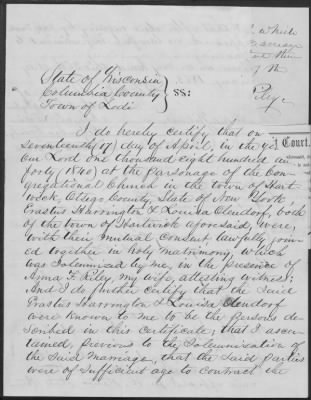 State of Wisconsin
Columbia County } SS:
Town of Lodi
I do hereby certify that on
Seventeenth (17) day of April, in the ye
Our Lord one thousand eight hundred an
forty (1840) at the parsonage of the Con-
gregational Church in the town of Hart-
wick, Otsego County, State of New York,
Erastus Harrington & Louisa Olendorf, both
of the town of Hartwick aforesaid, were,
with their mutual consent lawfully join-
ed together in holy matrimony, which
was solemnized by me, in the presence of
Asma F. Kiley my wife, attesting witness;
And I do further certify that the said
Erastus Harrington & Louisa Olendorf
were known to me to be the persons de-
scribed in this certificate, that I ascer-
tained, previous to the solemnization of
the said marriage, that the said parties
were of sufficient age to contract the
which
Court.